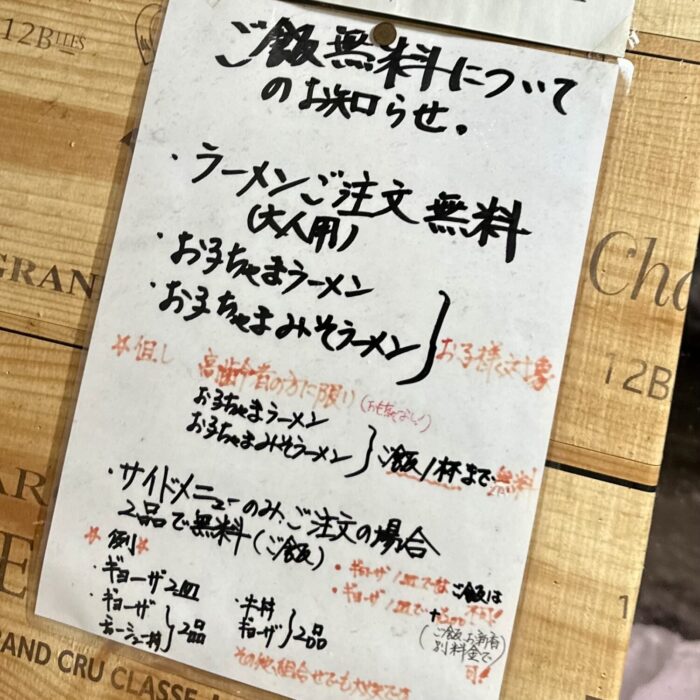 12Btles
ご飯無料について
のお知らせ。
・ラーメンご注文 無料
(大人用)
・お子ちゃまラーメン
・お子ちゃまみそラーメン
お子様対象
GRAN
Cha
12B
☆但し 高齢者の方に限り
(おもちゃなし!)
お子ちゃまラーメン
お子ちゃまみそラーメン
ご飯1杯まで無料
・サイドメニューのみ、ご注文の場合
2品で無料(ご飯)
☆例☆
・ギョーザ2皿
・ギョーザ
チャーシュー丼 2品
・牛丼
ギョーザ 2品
・ギョーザ1皿では ご飯は
・ギョーザ1皿で
不可!
(ご飯、お新香
別料金で
可!
その他、組合せでも大丈夫です
AR
E
1
RAND CRU CLASSE